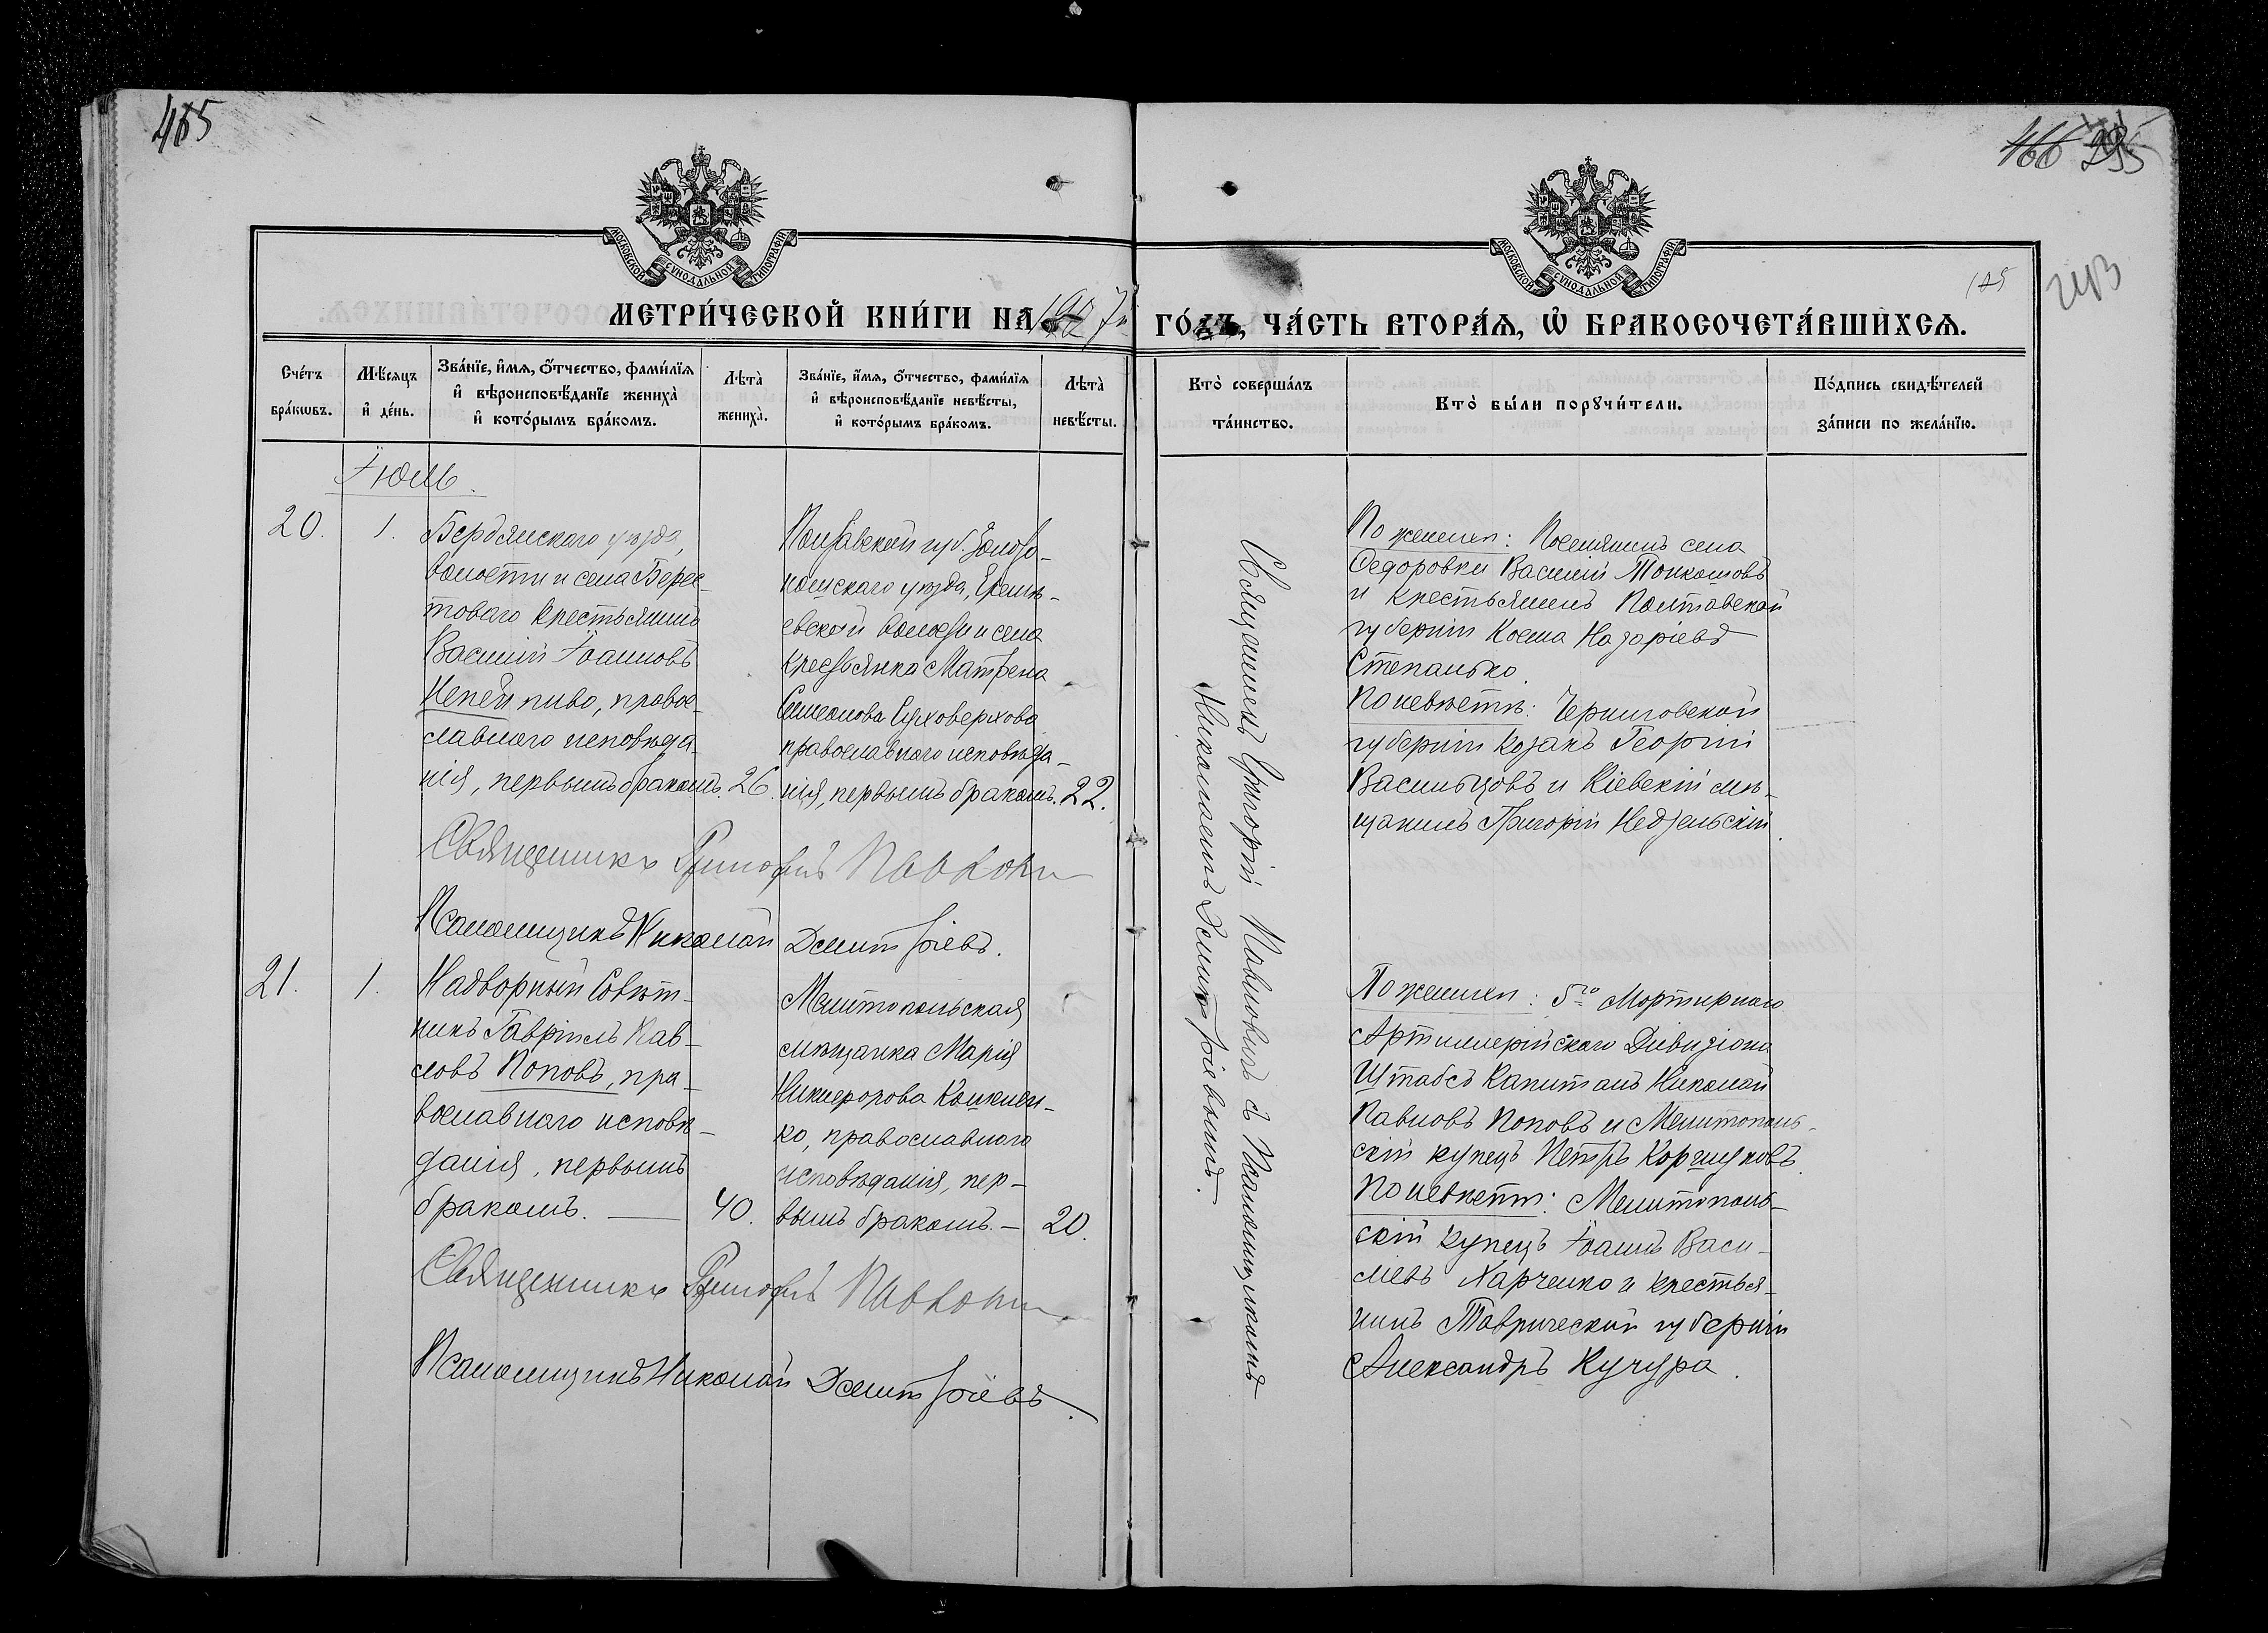 465
466 295
МОСКОВСКОЙ СѴНОДАЛЬНОЙ ТИПОГРАФІИ
МОСКОВСКОЙ СѴНОДАЛЬНОЙ ТИПОГРАФІИ
МЕТРИ́ЧЕСКОЙ КНИ́ГИ НА 1907 ГО́ДЪ, ЧА́СТЬ ВТОРА́Ѧ, Ѽ БРАКОСОЧЕТА́ВШИХСѦ.
Сче́тъ бра́кѡвъ.
Мѣ́сяцъ и҆ де́нь.
Зва́нїе, и҆́мѧ, ѻ҆́тчество, фами́лїѧ
и҆ вѣроисповѣ́данїе жениха̀
и҆ кото́рымъ бра́комъ.
Лѣта̀
жениха̀.
Зва́нїе, и҆́мѧ, ѻ҆́тчество, фами́лїѧ
и҆ вѣроисповѣ́данїе невѣ́сты,
и҆ кото́рымъ бра́комъ.
Лѣта̀
невѣ́сты.
Кто̀ соверша́лъ
та́инство.
Кто̀ бы́ли порꙋчи́тели.
По́дпись свидѣ́телей
за́писи по жела́нїю.
Іюль.
20.
1.
Бердянскаго уѣзда,
волости и села Берес-
товаго крестьянинъ
Василій Іоанновъ
Непейпиво, право-
славнаго исповѣда-
нія, первымъ бракомъ.
26.
Полтавской губ. Золото-
ношскаго уѣзда,
евской волости и села
крестьянка Матрена
Симеонова Суховерхова
православнаго исповѣда-
нія, первымъ бракомъ.
22.
Священникъ Григорій Павловичъ съ Псаломщикомъ
Николаемъ Дмитріевымъ.
По женихѣ: Поселянинъ села
Ѳедоровки Василій Толкашовъ
и крестьянинъ Полтавской
губерніи Косма Назаріевъ
Степанько.
По невѣстѣ: Черниговской
губерніи козакъ Георгій
Васильцовъ и Кіевскій мѣ-
щанинъ Григорій Недзельскій.
Священникъ Григорій Павлови
Псаломщикъ Николай Дмитріевъ.
21.
1.
Надворный Совѣт-
никъ Гавріилъ Пав-
ловъ Поповъ, пра-
вославнаго исповѣ-
данія, первымъ
бракомъ.
40.
Мелитопольская
мѣщанка Марія
Никифорова Кошкиен-
ко, православнаго
исповѣданія, пер-
вымъ бракомъ. —
20.
По женихѣ: 5го Мортирнаго
Артиллерійскаго Дивизіона
Штабсъ Капитанъ Николай
Павловъ Поповъ и Мелитополь-
скій купецъ Петръ Коршуновъ.
По невѣстѣ: Мелитополь-
скій купецъ Іоаннъ Васи-
льевъ Харченко и крестья-
нинъ Таврической губерніи
Александръ Кучура.
Священникъ Григорій Павлови
Псаломщикъ Николай Дмитріевъ.